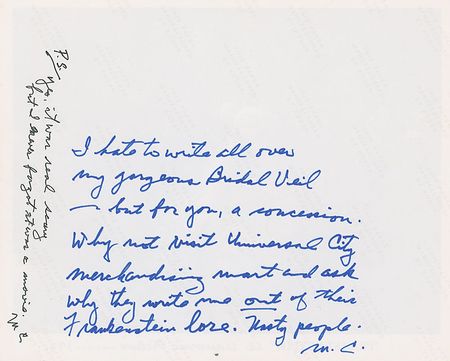 I hate to write all over
my gorgeous Bridal Veil
— but for you, a concession.
Why not visit Universal City
merchandising mart and ask
why they write me out of their
Frankenstein lore. Nasty people.
M. C.
P.S. Yes, it was real scary
but I never forgot it was a movie.
M. C.